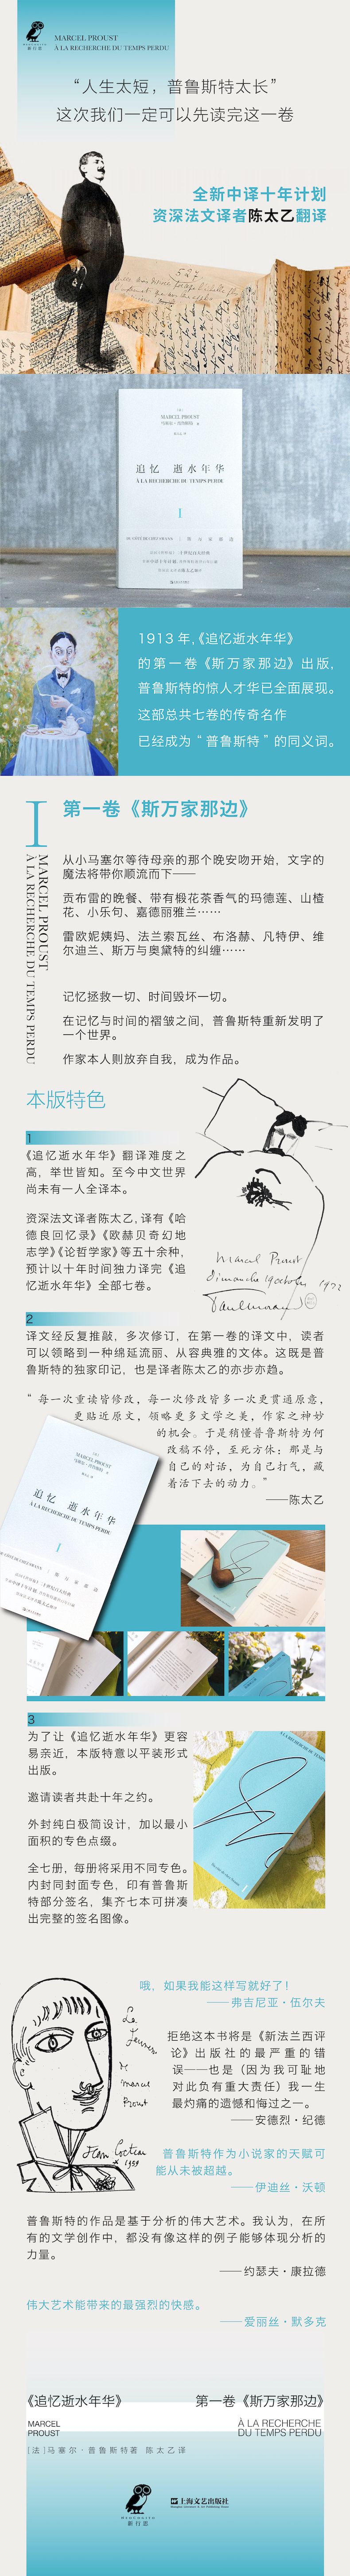 MARCEL PROUST
À LA RECHERCHE DU TEMPS PERDU
新行思
“人生太短，普鲁斯特太长”
这次我们一定可以先读完这一卷
全新中译十年计划
资深法文译者陈太乙翻译
MARCEL PROUST
追忆 逝水年华
À LA RECHERCHE DU TEMPS PERDU
I
1913 年,《追忆逝水年华》
的第一卷《斯万家那边》出版,
普鲁斯特的惊人才华已全面展现。
这部总共七卷的传奇名作
已经成为“普鲁斯特”的同义词。
I
MARCEL PROUST
À LA RECHERCHE DU TEMPS PERDU
第一卷《斯万家那边》
从小马塞尔等待母亲的那个晚安吻开始，文字的
魔法将带你顺流而下——
贡布雷的晚餐、带有椴花茶香气的玛德莲、山楂
花、小乐句、嘉德丽雅兰……
雷欧妮姨妈、法兰索瓦丝、布洛赫、凡特伊、维
尔迪兰、斯万与奥黛特的纠缠……
记忆拯救一切、时间毁坏一切。
在记忆与时间的褶皱之间，普鲁斯特重新发明了
一个世界。
作家本人则放弃自我，成为作品。
本版特色
1
《追忆逝水年华》翻译难度之
高，举世皆知。至今中文世界
尚未有一人全译本。
资深法文译者陈太乙,译有《哈
德良回忆录》《欧赫贝奇幻地
志学》《论哲学家》等五十余种,
预计以十年时间独力译完《追
忆逝水年华》全部七卷。
Marcel Proust
2
译文经反复推敲，多次修订，在第一卷的译文中，读者
可以领略到一种绵延流丽、从容典雅的文体。这既是普
鲁斯特的独家印记，也是译者陈太乙的亦步亦趋。
“每一次重读皆修改，每一次修改皆多一次更贯通原意，
更贴近原文，领略更多文学之美，作家之神妙
的机会。于是稍懂普鲁斯特为何
改稿不停，至死方休：那是与
自己的对话，为自己打气，藏
着活下去的动力。”
——陈太乙
MARCEL PROUST
追忆 逝水年华
À LA RECHERCHE DU TEMPS PERDU
I
3
为了让《追忆逝水年华》更容
易亲近，本版特意以平装形式
出版。
邀请读者共赴十年之约。
外封纯白极简设计，加以最小
面积的专色点缀。
全七册，每册将采用不同专色。
内封同封面专色，印有普鲁斯
特部分签名，集齐七本可拼凑
出完整的签名图像。
哦，如果我能这样写就好了！
——弗吉尼亚・伍尔夫
拒绝这本书将是《新法兰西评
论》出版社的最严重的错
误——也是（因为我可耻地
对此负有重大责任）我一生
最灼痛的遗憾和悔过之一。
——安德烈・纪德
普鲁斯特作为小说家的天赋可
能从未被超越。
——伊迪丝・沃顿
marcel
Proust
Jean Cocteau
普鲁斯特的作品是基于分析的伟大艺术。我认为，在所
有的文学创作中，都没有像这样的例子能够体现分析的
力量。
——约瑟夫・康拉德
伟大艺术能带来的最强烈的快感。
——爱丽丝・默多克
《追忆逝水年华》
第一卷《斯万家那边》
MARCEL
PROUST
À LA RECHERCHE
DU TEMPS PERDU
[法]马塞尔·普鲁斯特著 陈太乙译
新行思
上海文艺出版社